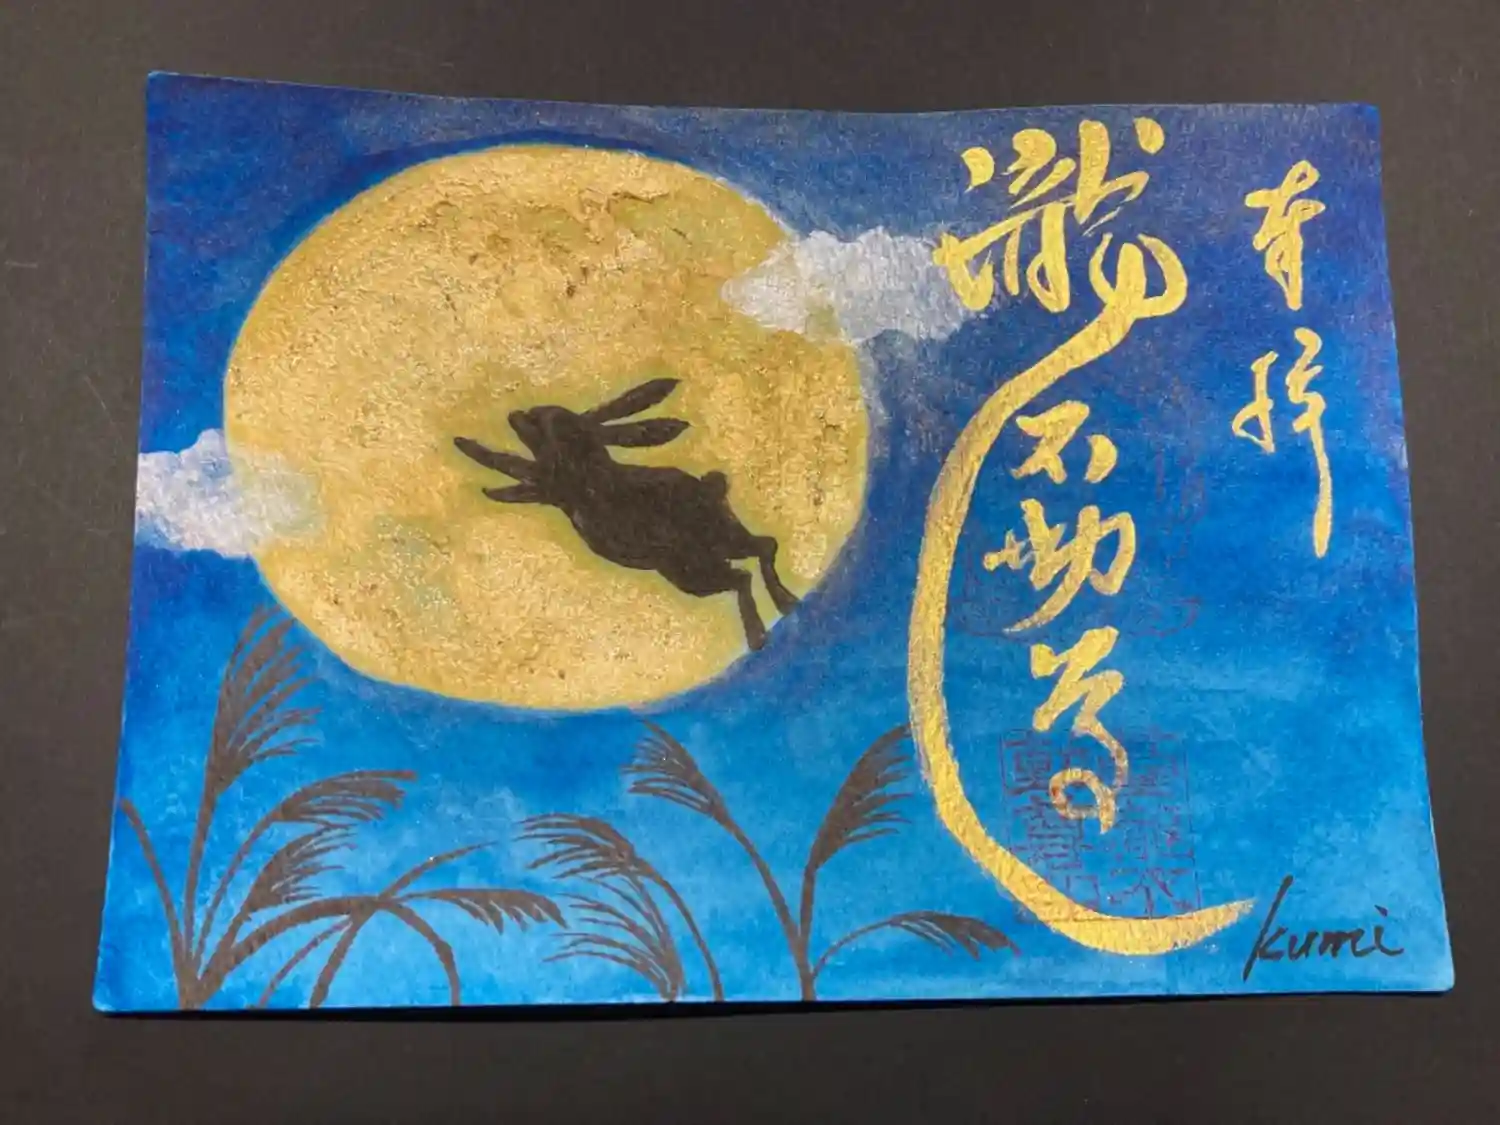 奉拝
瀧不動尊
kumi